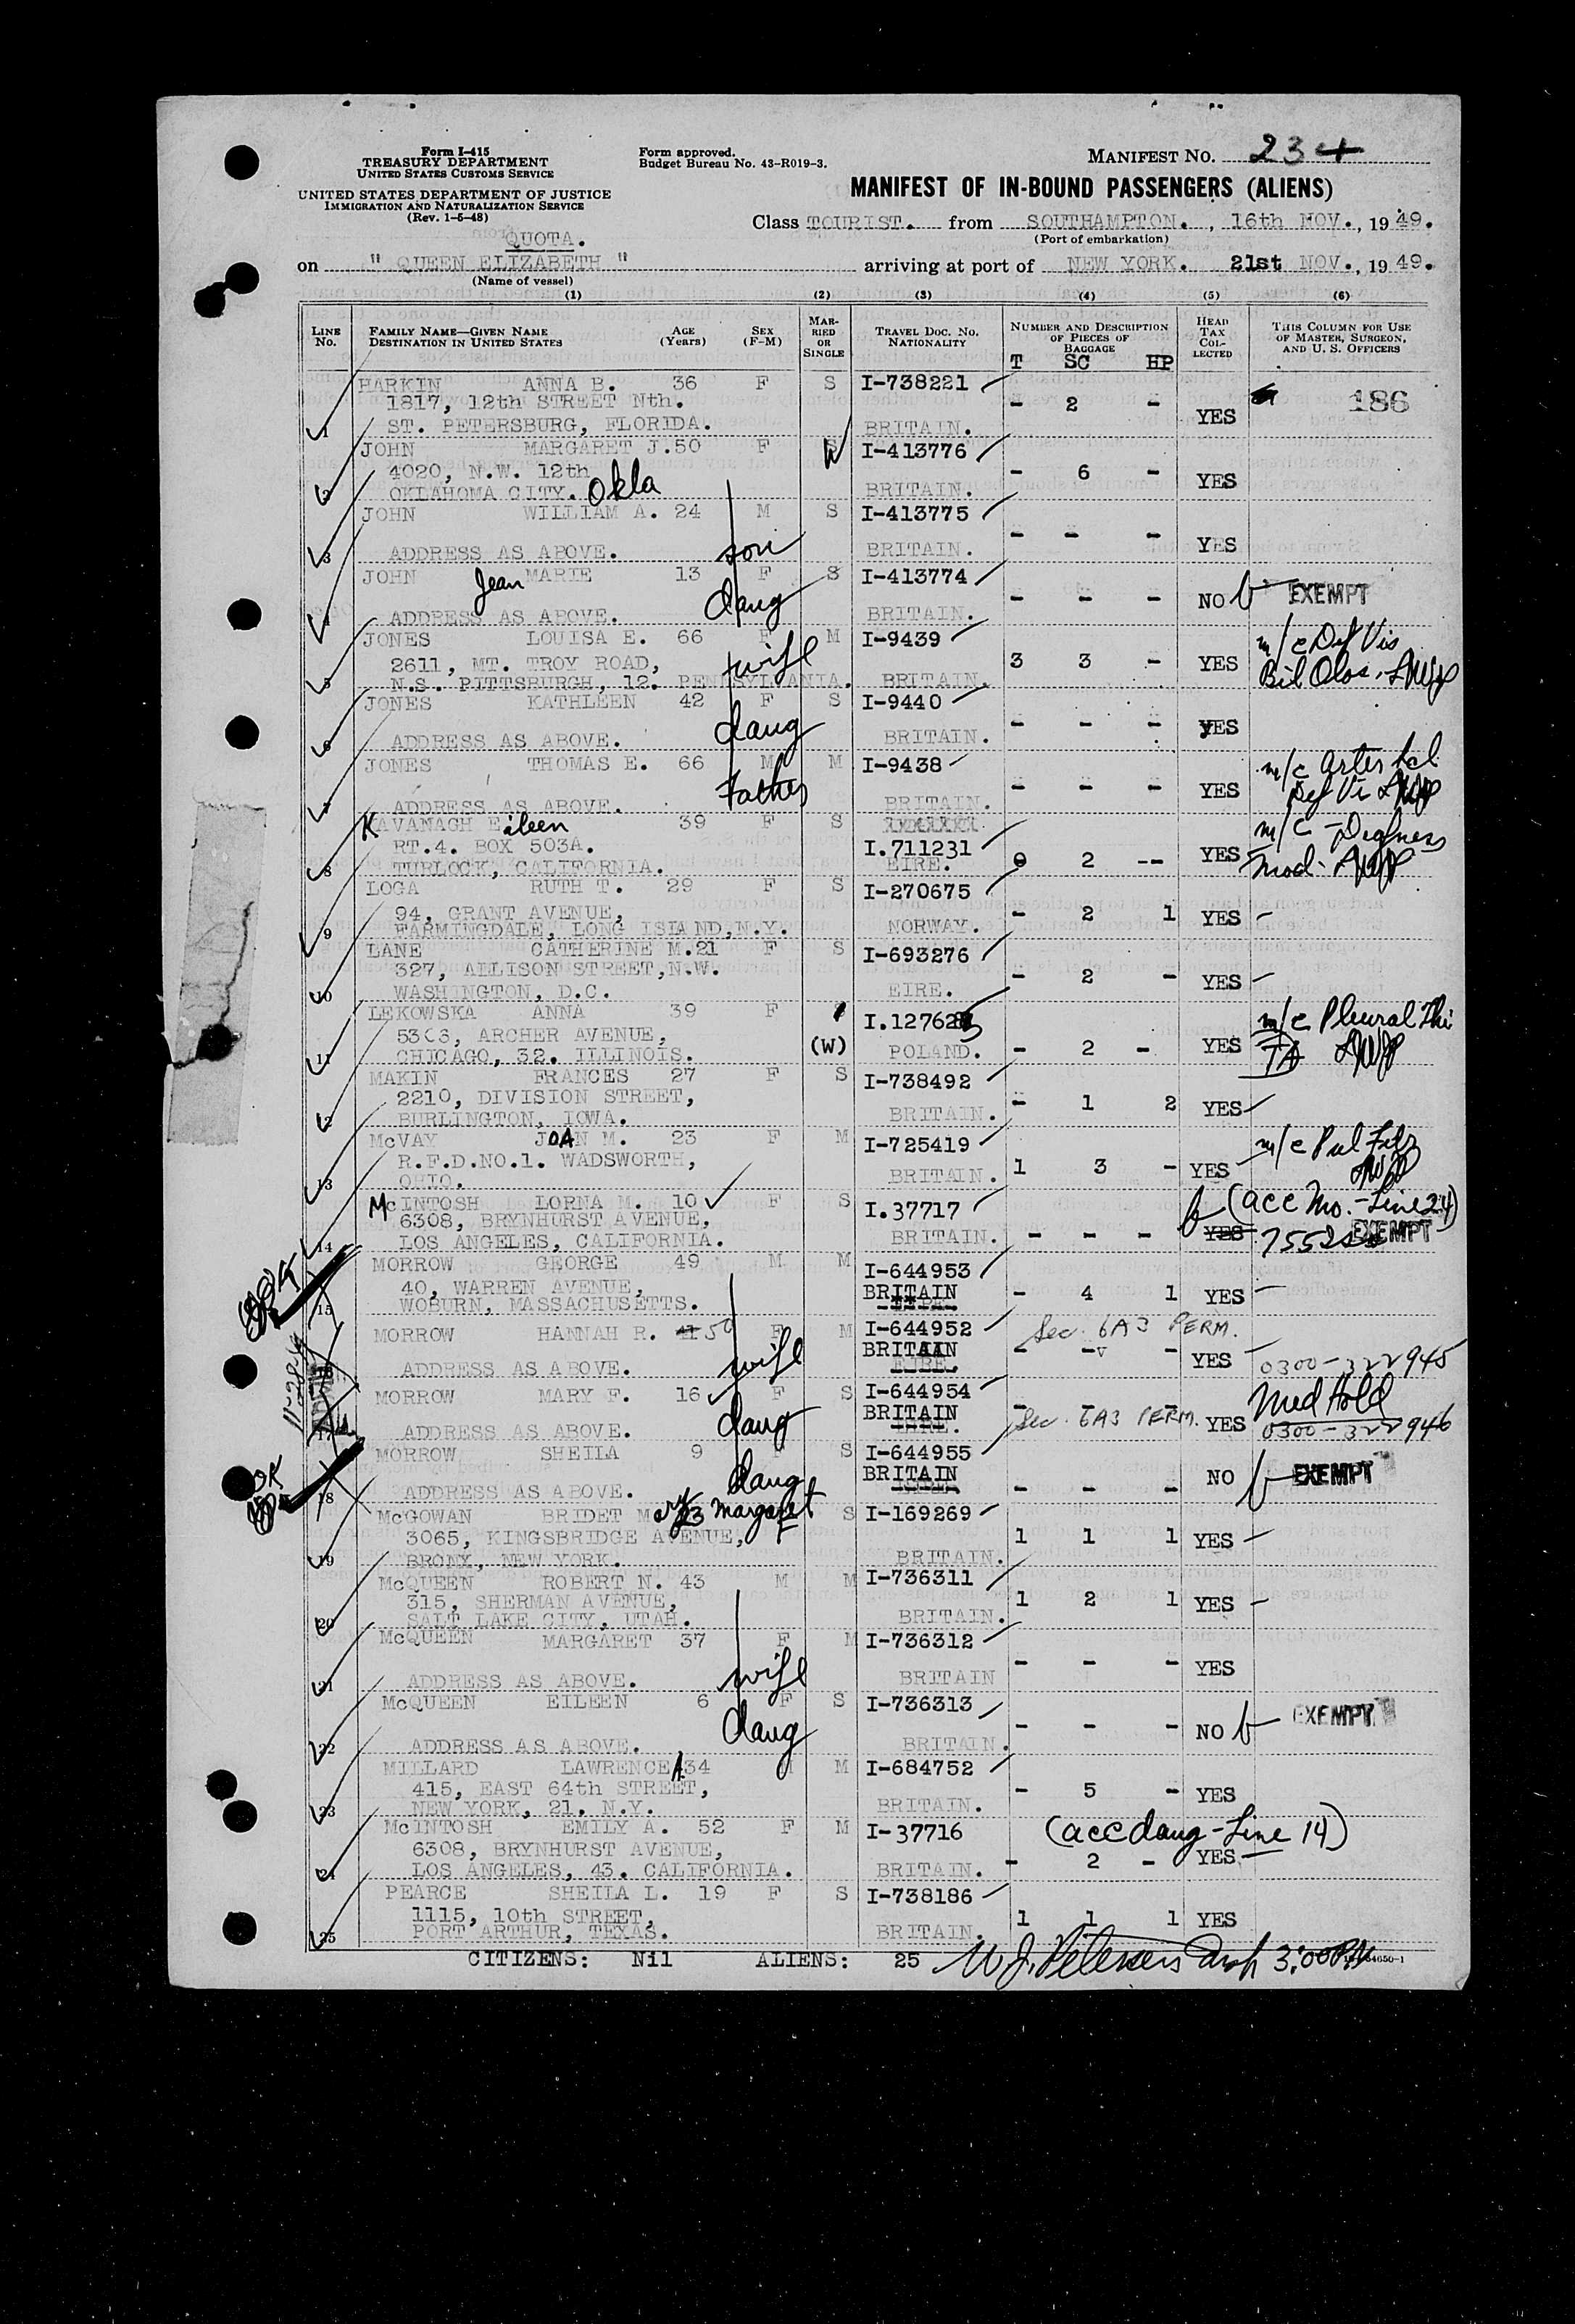 Form I-415
TREASURY DEPARTMENT
UNITED STATES CUSTOMS SERVICE
UNITED STATES DEPARTMENT OF JUSTICE
IMMIGRATION AND NATURALIZATION SERVICE
(Rev. 1-5-48)
Form approved.
Budget Bureau No. 43-R019-3.
MANIFEST NO. 234
MANIFEST OF IN-BOUND PASSENGERS (ALIENS)
Class TOURIST. from SOUTHAMPTON. , 16th NOV., 1949.
(Port of embarkation)
QUOTA.
on " QUEEN ELIZABETH " arriving at port of NEW YORK. 21st NOV., 1949.
(Name of vessel)
(1) (2) (3) (4) (5) (6)
LINE NO. FAMILY NAME—GIVEN NAME DESTINATION IN UNITED STATES AGE (Years) SEX (F-M) MARRIED OR SINGLE TRAVEL DOC. No. NATIONALITY NUMBER AND DESCRIPTION OF PIECES OF BAGGAGE HEAD TAX COLLECTED THIS COLUMN FOR USE OF MASTER, SURGEON, AND U. S. OFFICERS
T SC HP
HARKIN ANNA B. 36 F S I-738221 186
1817, 12th STREET Nth. - 2 - YES
1 ST. PETERSBURG, FLORIDA. BRITAIN.
JOHN MARGARET J. 50 F W I-413776
4020, N.W. 12th - 6 - YES
2 OKLAHOMA CITY. Okla BRITAIN.
JOHN WILLIAM A. 24 M S I-413775
- - - YES
3 ADDRESS AS ABOVE. son BRITAIN.
JOHN Jean MARIE 13 F S I-413774
- - - NO EXEMPT
4 ADDRESS AS ABOVE. daug BRITAIN.
JONES LOUISA E. 66 F M I-9439 m/c Def Vis
2611, MT. TROY ROAD, wife 3 3 - YES
5 N.S. PITTSBURGH, 12. PENNSYLVANIA. BRITAIN.
JONES KATHLEEN 42 F S I-9440
- - - YES
6 ADDRESS AS ABOVE. daug BRITAIN.
JONES THOMAS E. 66 M M I-9438 m/c Arter Scl
Father - - - YES Def Vi
7 ADDRESS AS ABOVE. BRITAIN.
KAVANAGH Eileen 39 F S m/c - Deafness
RT.4. BOX 503A. I.711231 0 2 -- YES mod.
8 TURLOCK, CALIFORNIA. EIRE.
LOGA RUTH T. 29 F S I-270675
94, GRANT AVENUE, - 2 1 YES
9 FARMINGDALE, LONG ISLAND, N.Y. NORWAY.
LANE CATHERINE M. 21 F S I-693276
327, ALLISON STREET, N.W. - 2 - YES
10 WASHINGTON, D.C. EIRE.
LEKOWSKA ANNA 39 F I.12762 m/c Pleural Thi
5303, ARCHER AVENUE, (W)
11 CHICAGO, 32. ILLINOIS. POLAND. - 2 - YES
MAKIN FRANCES 27 F S I-738492
2210, DIVISION STREET, - 1 2 YES
12 BURLINGTON, IOWA. BRITAIN.
McVAY JOAN M. 23 F M I-725419 m/c Pul Fibr
R.F.D.NO.1. WADSWORTH, 1 3 - YES
13 OHIO. BRITAIN.
McINTOSH LORNA M. 10 F S I.37717 (acc Mo. - Line 24)
6308, BRYNHURST AVENUE, YES EXEMPT
14 LOS ANGELES, CALIFORNIA. BRITAIN. - - -
MORROW GEORGE 49 M M I-644953
40, WARREN AVENUE, BRITAIN - 4 1 YES
15 WOBURN, MASSACHUSETTS.
MORROW HANNAH R. 50 F M I-644952 Sec. 6A3 PERM.
BRITAIN - - - YES 0300-322945
16 ADDRESS AS ABOVE. wife EIRE.
MORROW MARY F. 16 F S I-644954 Med Hold
BRITAIN - - - Sec. 6A3 PERM. YES 0300-322946
17 ADDRESS AS ABOVE. daug EIRE.
MORROW SHEILA 9 F S I-644955
BRITAIN - - - NO EXEMPT
18 ADDRESS AS ABOVE. daug
McGOWAN BRIDET Mary Margaret 23 F S I-169269
3065, KINGSBRIDGE AVENUE, 1 1 1 YES
19 BRONX, NEW YORK. BRITAIN.
McQUEEN ROBERT N. 43 M M I-736311
315, SHERMAN AVENUE, 1 2 1 YES
20 SALT LAKE CITY, UTAH. BRITAIN.
McQUEEN MARGARET 37 F M I-736312
- - - YES
21 ADDRESS AS ABOVE. wife BRITAIN
McQUEEN EILEEN 6 F S I-736313
- - - NO EXEMPT
22 ADDRESS AS ABOVE. daug BRITAIN.
MILLARD LAWRENCE A 34 M I-684752
415, EAST 64th STREET, - 5 - YES
23 NEW YORK, 21. N.Y. BRITAIN.
McINTOSH EMILY A. 52 F M I-37716 (acc daug - Line 14)
6308, BRYNHURST AVENUE, - 2 - YES
24 LOS ANGELES, 43. CALIFORNIA. BRITAIN.
PEARCE SHEILA L. 19 F S I-738186
1115, 10th STREET, 1 1 1 YES
25 PORT ARTHUR, TEXAS. BRITAIN.
CITIZENS: Nil ALIENS: 25 W J. Petersen 3:00 PM